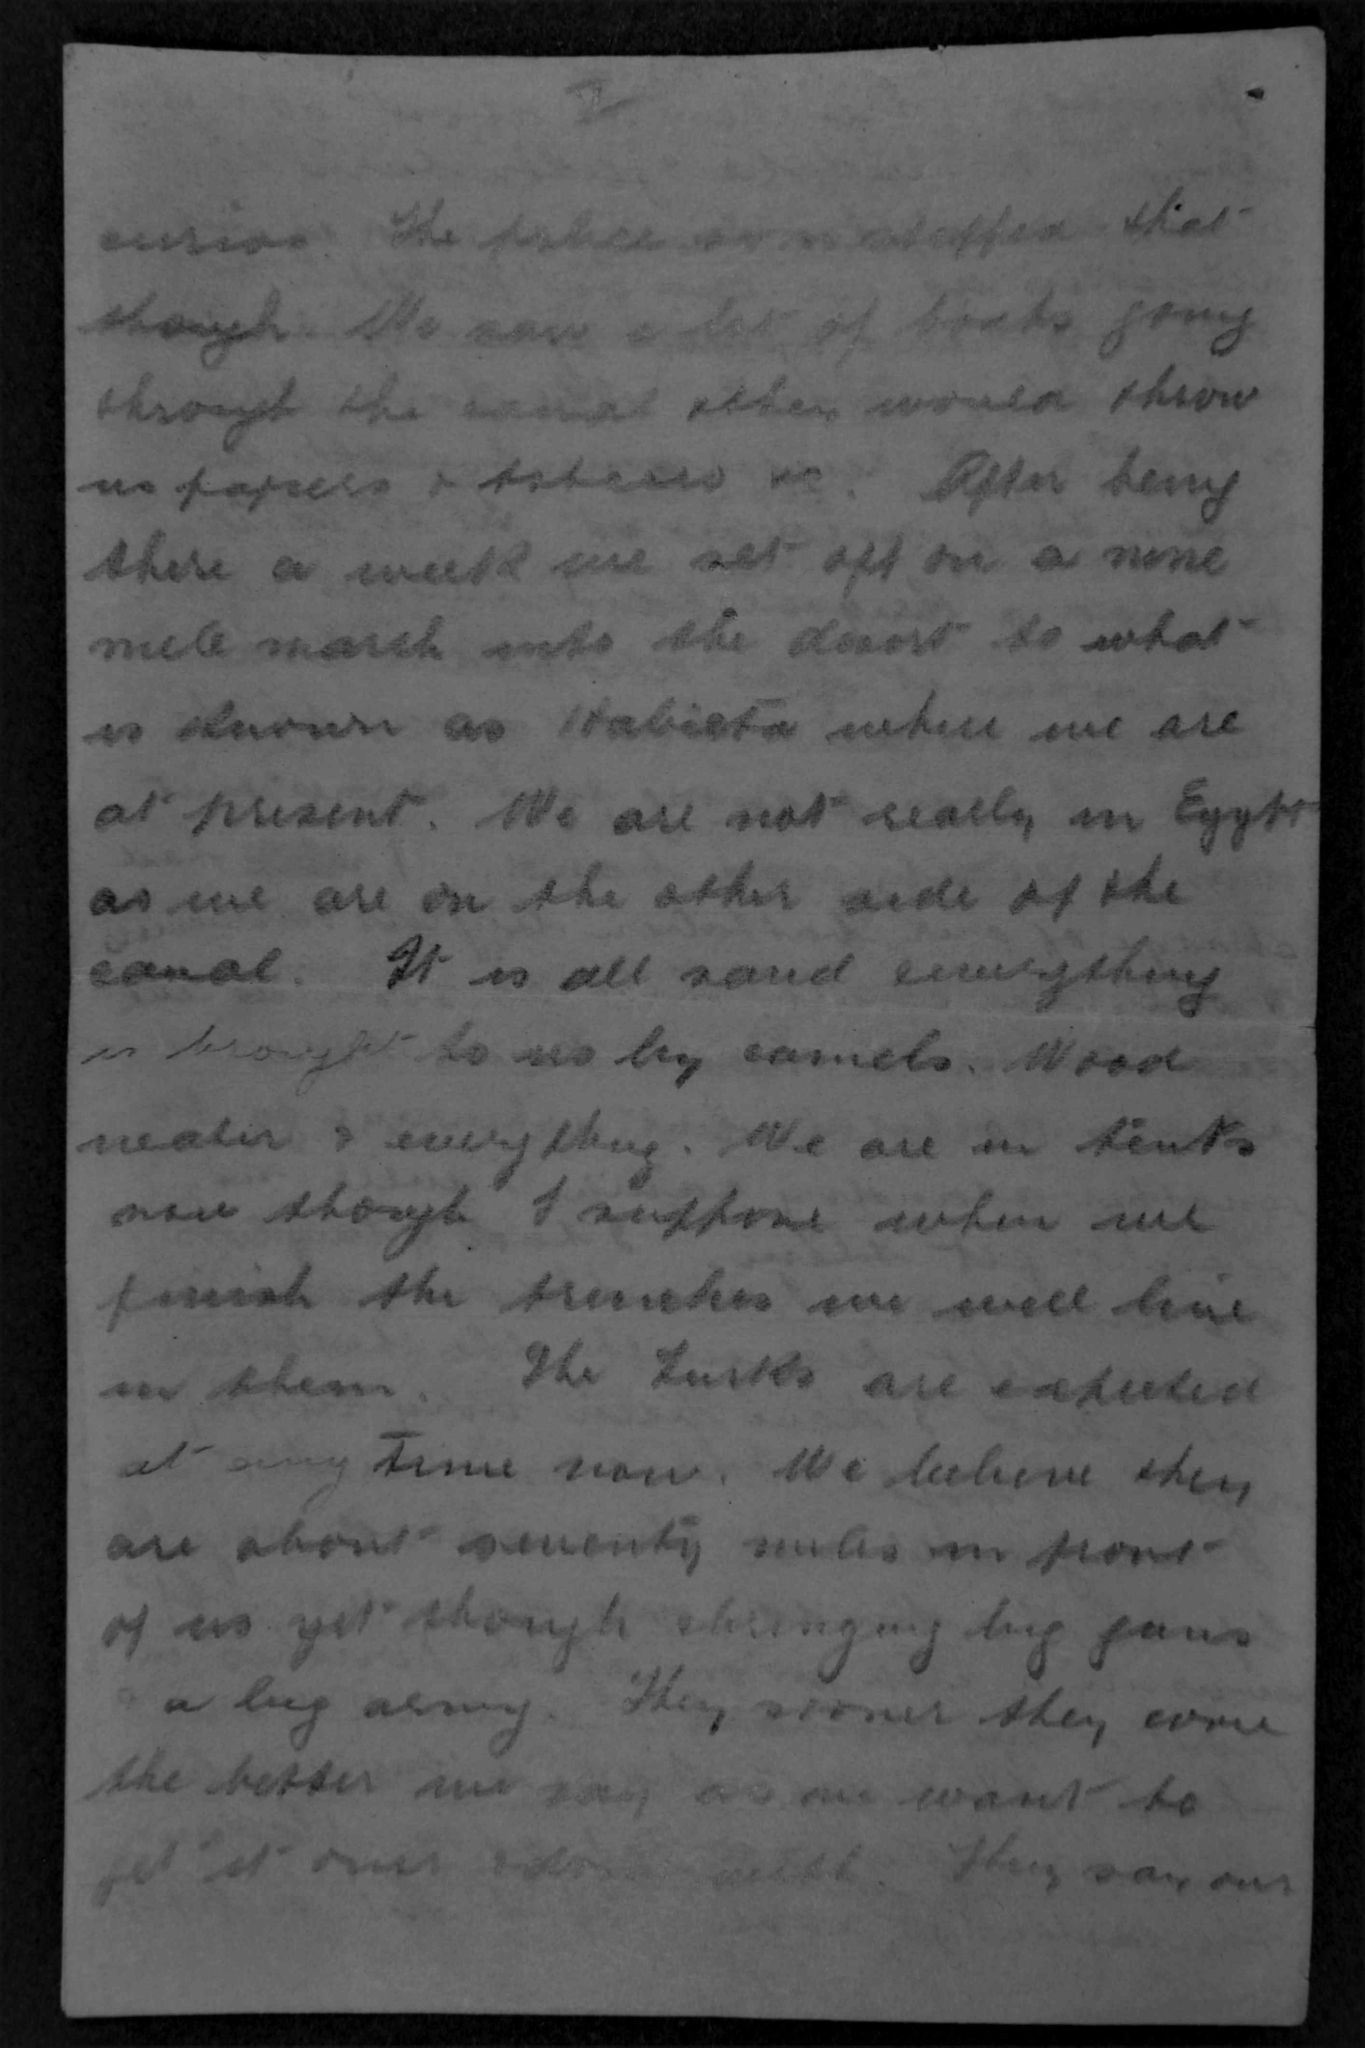 2
curios The police soon stopped that
though. We saw a lot of boats going
through the canal & they would throw
us papers & tobacco &c. After being
there a week we set off on a nine
mile march into the desert to what
is known as Habieta where we are
at present. We are not really in Egypt
as we are on the other side of the
canal. It is all sand everything
is brought to us by camels. Wood
water & everything. We are in tents
now though I suppose when we
finish the trenches we will live
in them. The Turks are expected
at any time now. We believe they
are about seventy miles in front
of us yet though bringing big guns
& a big army. They sooner they come
the better we say as we want to
get it over & done with. They say our